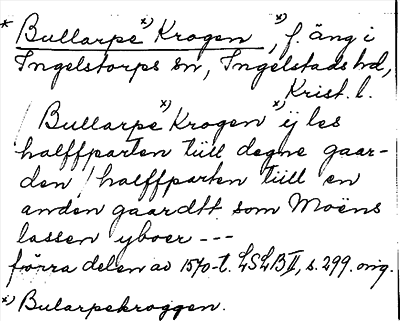 * Bullarpe x) Krogen x), f. äng i
Ingelstorps sn, Ingelstads hd,
Krist. l.
Bullarpe x) Krogen x) ij les
halffparten tiill degne gaar-
den / halffparten tiill en
anden gaardtt som Moëns
lassen yboer ---
förra delen av 1570-t. LSLB II, s. 299. orig.
x) Bularpekroggen.